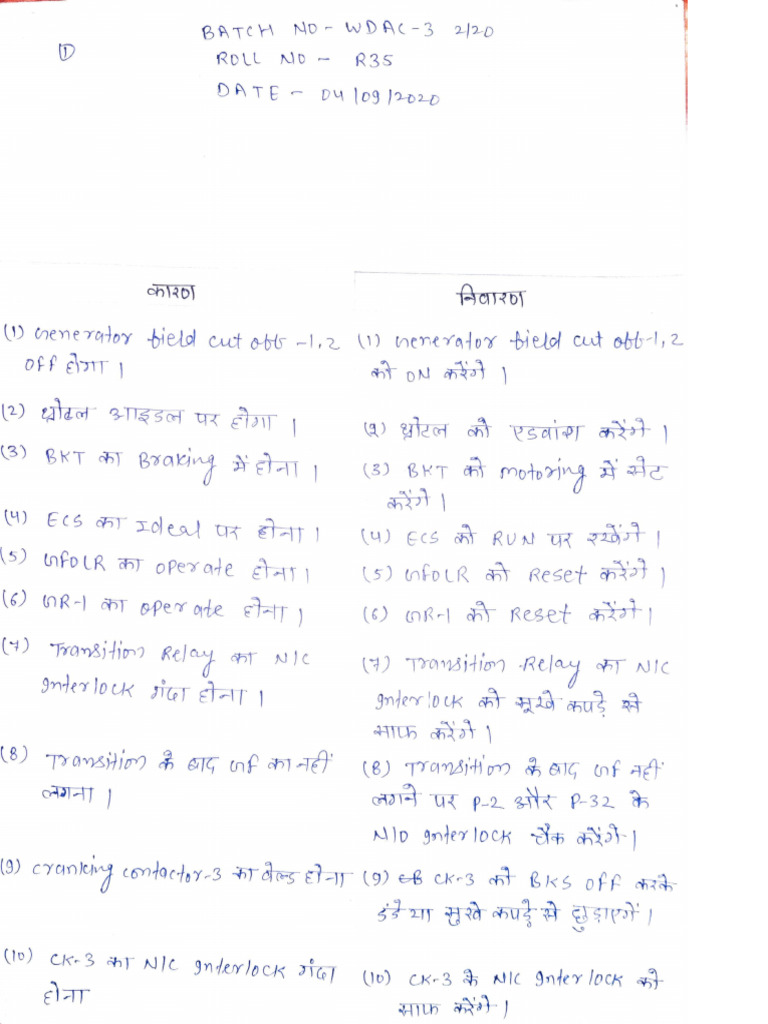 ①
BATCH NO - WDAC-3 2/20
ROLL NO - R35
DATE - 04/09/2020
कारण
निवारण
(1) Generator field cut off -1,2
OFF होगा।
(1) Generator field cut off-1,2
को ON करेंगे।
(2) थ्रोटल आइडल पर होगा।
(2) थ्रोटल को एडवांस करेंगे।
(3) BKT का Braking में होना।
(3) BKT को motoring में सेट
करेंगे।
(4) ECS का Ideal पर होना।
(4) ECS को RUN पर रखेंगे।
(5) GFOLR का operate होना।
(5) GFOLR को Reset करेंगे।
(6) GR-1 का operate होना।
(6) GR-1 को Reset करेंगे।
(7) Transition Relay का N/C
Interlock गंदा होना।
(7) Transition Relay का N/C
Interlock को सूखे कपड़े से
साफ करेंगे।
(8) Transition के बाद GF का नहीं
लगना।
(8) Transition के बाद GF नहीं
लगने पर P-2 और P-32 के
N/O Interlock चैक करेंगे।
(9) Cranking contactor-3 का वेल्ड होना
(9) CK-3 को BKS OFF करके
डंडे या सुखे कपड़े से छुड़ाएगें।
(10) CK-3 का N/C Interlock गंदा
होना
(10) CK-3 के N/C Interlock को
साफ करेंगे।